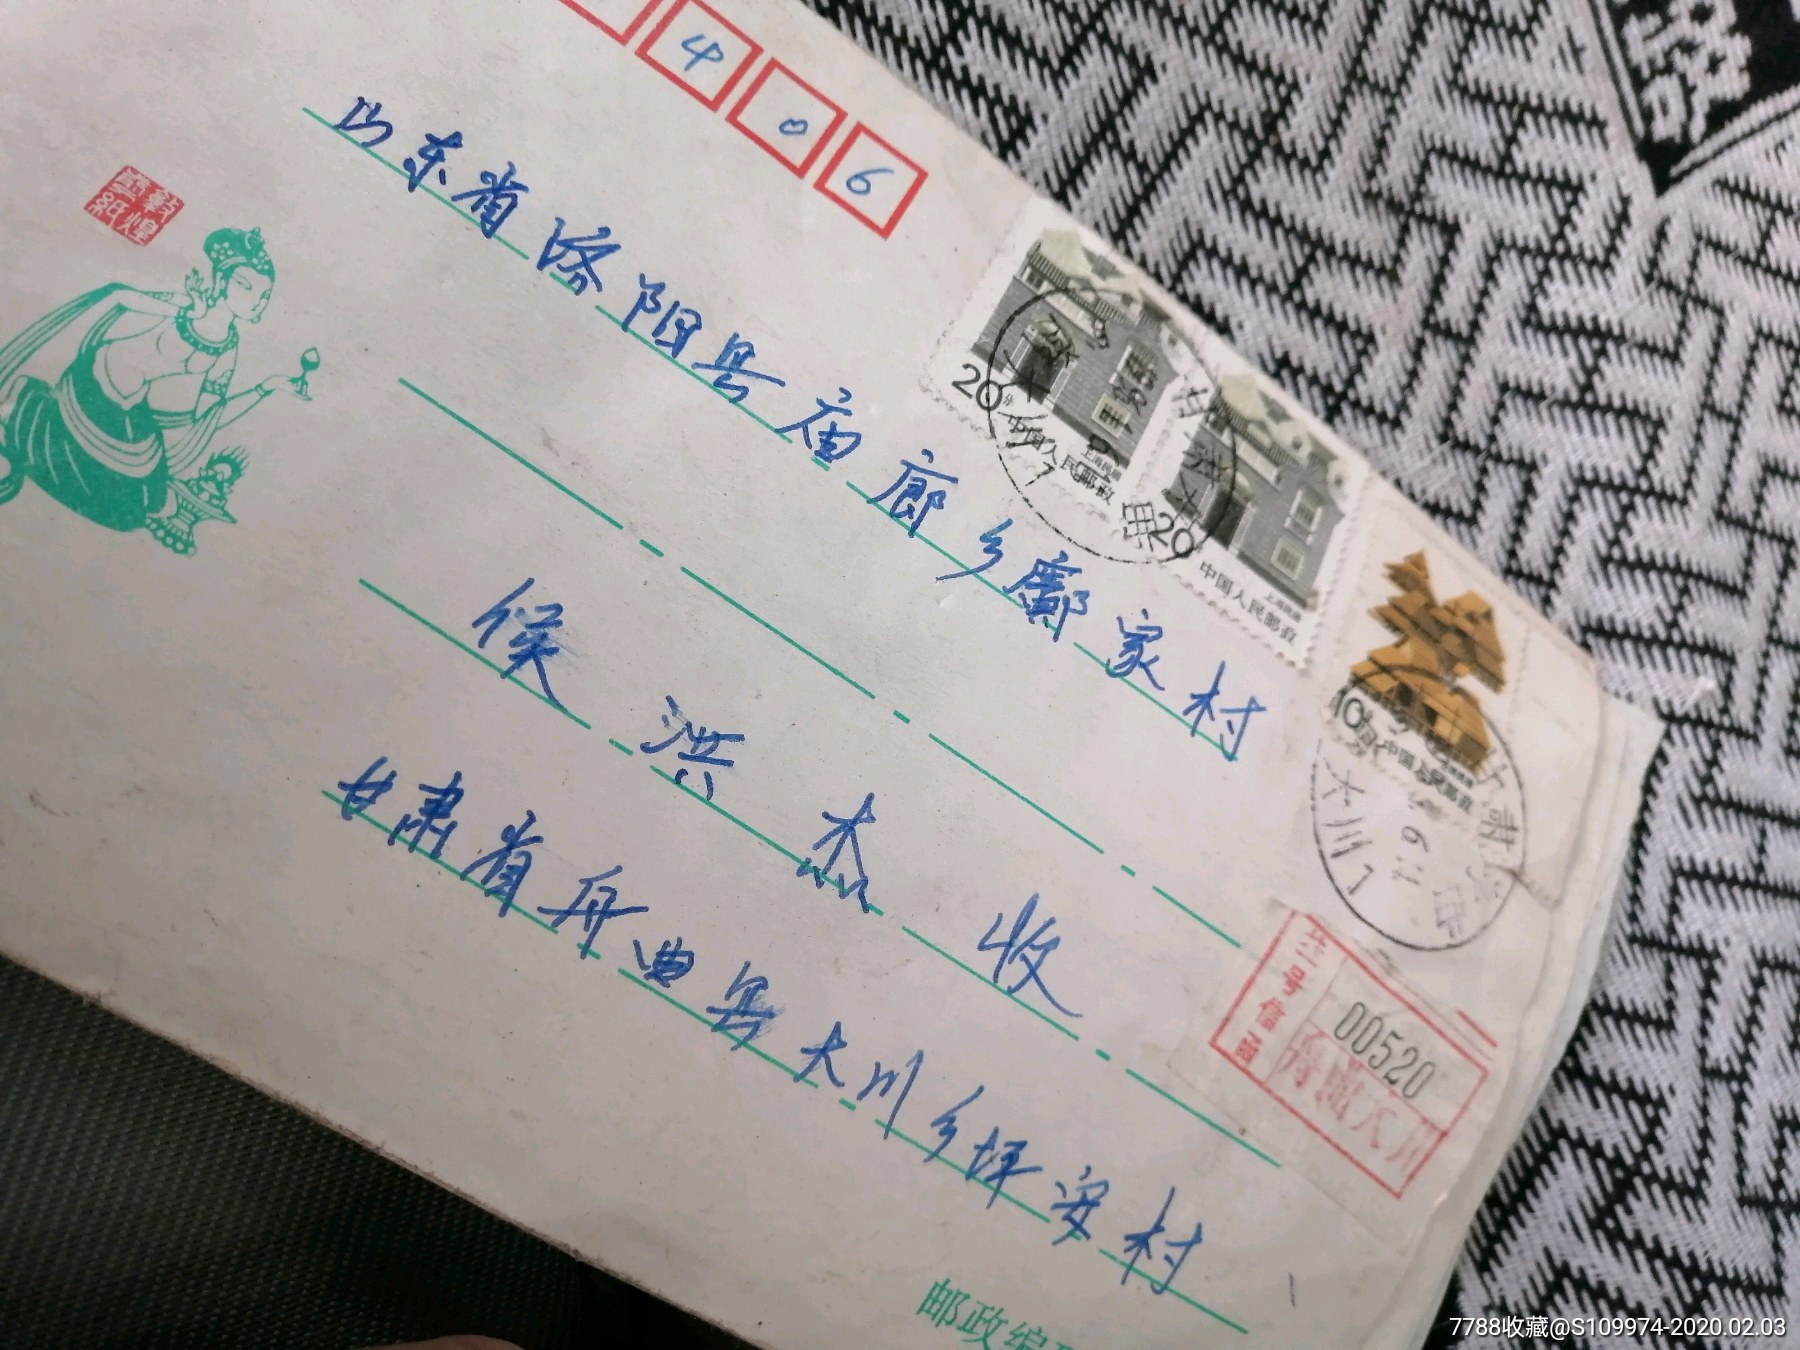 4 0 6
敦煌
剪紙
山东省济阳县庙廊乡鄺家村
侯洪杰 收
甘肃省舟曲县大川乡坪安村
20分
上海民居
中国人民邮政
20
上海民居
中国人民邮政
10分
中国人民邮政
大川
1
挂号信函
00520
甘肃大川
邮政编
7788收藏@S109974-2020.02.03